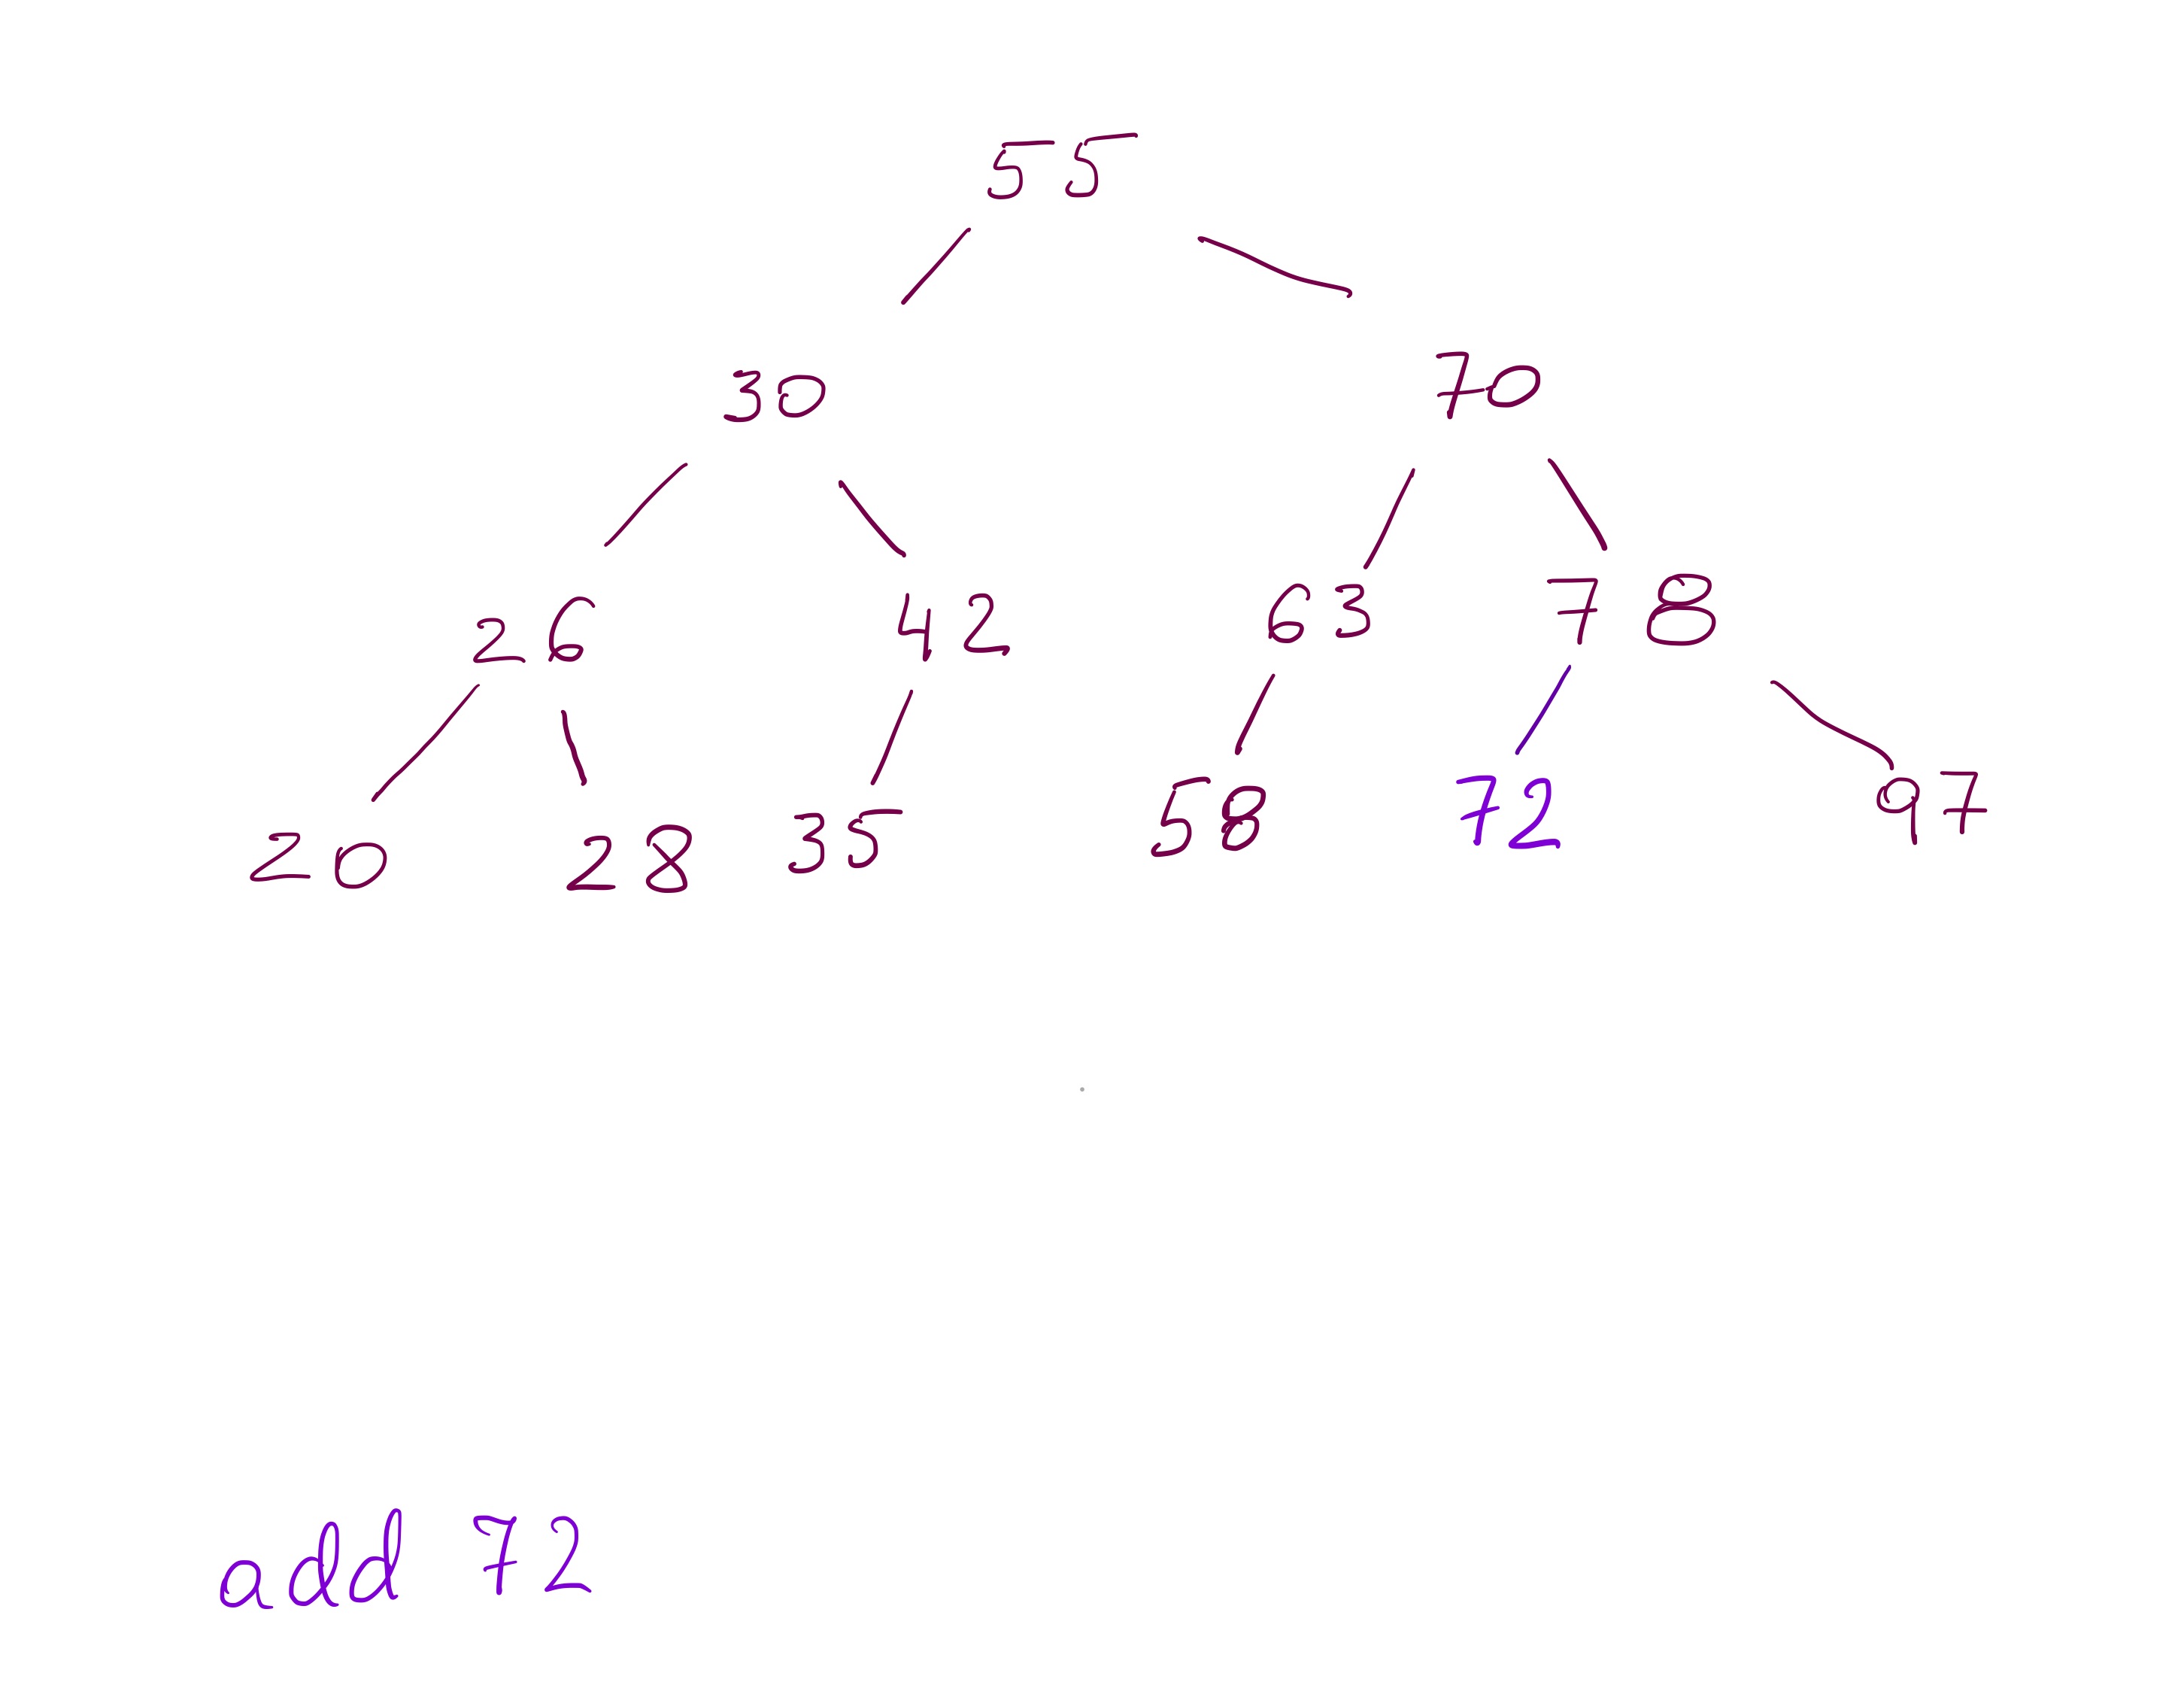 55
30 70
26 42 63 78
20 28 35 58 72 97
add 72